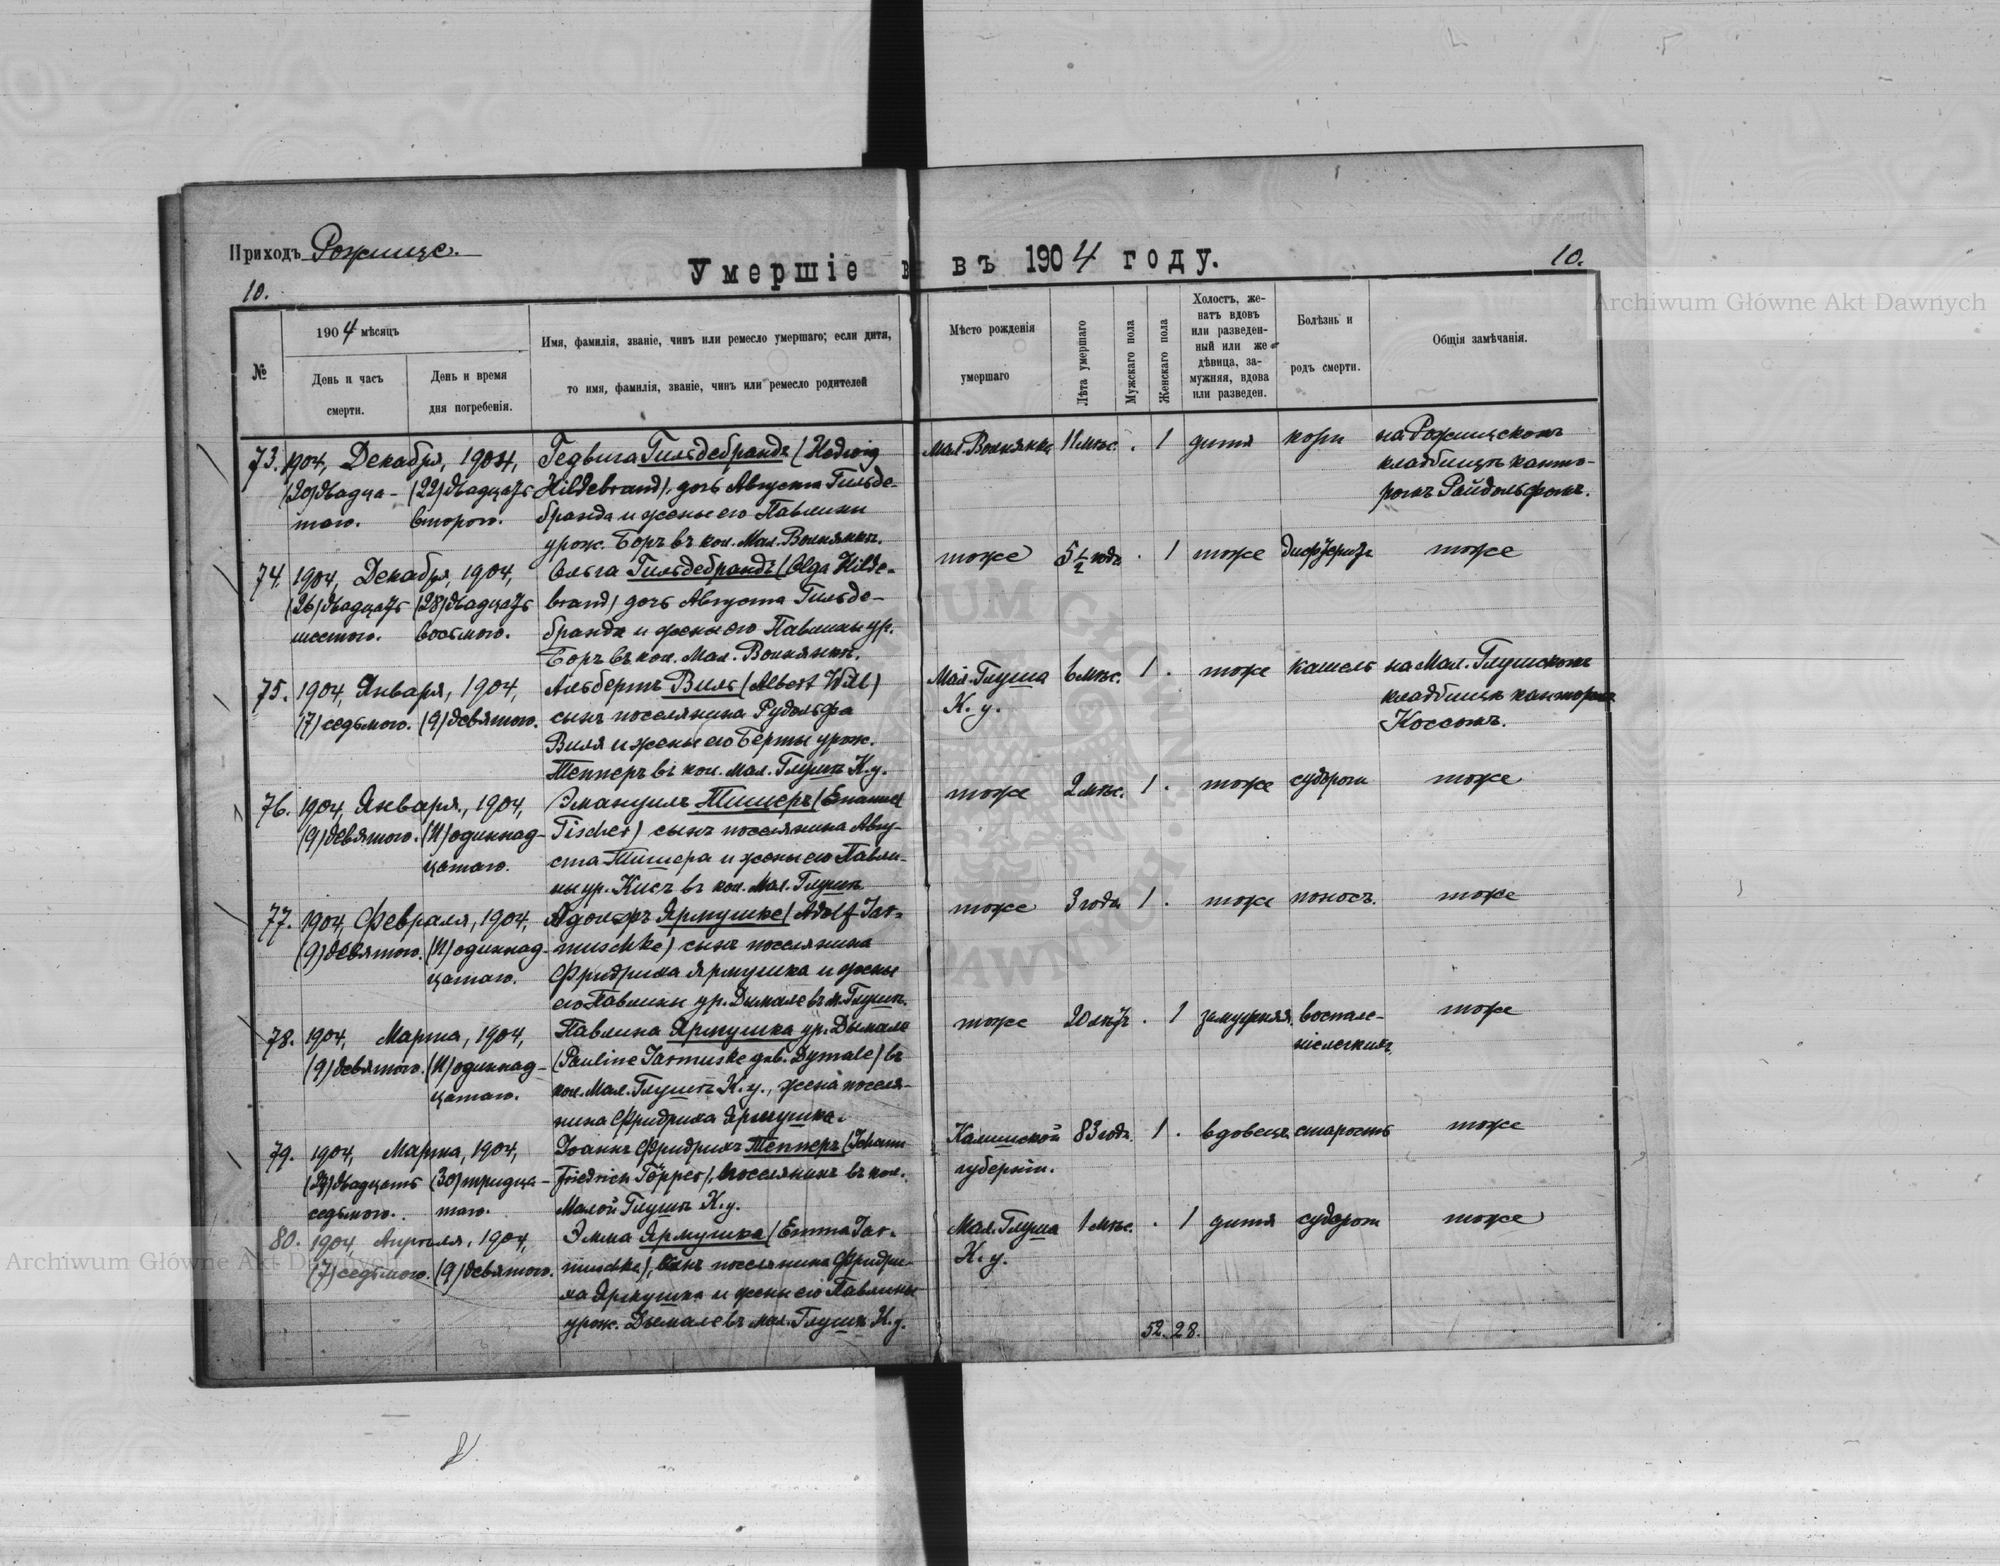 Приходъ Рожище.
Умершіе въ 1904 году.
10.
10.
№
1904 мѣсяцъ
День и часъ
смерти.
День и время
дня погребенія.
Имя, фамилія, званіе, чинъ или ремесло умершаго; если дитя,
то имя, фамилія, званіе, чинъ или ремесло родителей
Мѣсто рожденія
умершаго
Лѣта умершаго
Мужскаго пола
Женскаго пола
Холостъ, же-
натъ вдовъ
или разведен-
ный или же
дѣвица, за-
мужняя, вдова
или разведен.
Болѣзнь и
родъ смерти.
Общія замѣчанія.
73. 1904, Декабря, 1904, Гедвига Гильдебрандъ (Hedwig
(20) двадца- (22) двадцать Hildebrand), дочь Августа Гильде-
таго. второго. бранда и жены его Павлины
урож. Боръ въ кол. Мал. Волнянкѣ.
Мал. Волнянка 11 мѣс. . 1 дитя кори на Рожищскомъ
кладбищѣ канто-
ромъ Райдольфомъ.
74. 1904, Декабря, 1904, Ольга Гильдебрандъ (Olga Hilde-
(26) двадцать (28) двадцать brand) дочь Августа Гильде-
шестого. восьмого. бранда и жены его Павлины ур.
Боръ въ кол. Мал. Волнянкѣ.
тоже 5 1/2 годъ . 1 тоже дифтеритъ тоже
75. 1904, Января, 1904, Альбертъ Виль (Albert Will)
(7) седьмого. (9) девятого. сынъ поселянина Рудольфа
Виля и жены его Берты урож.
Тепперъ въ кол. Мал. Глушѣ К. у.
Мал. Глуша 6 мѣс. 1 . тоже кашель на Мал. Глушскомъ
К. у. кладбищѣ канторомъ
Коссомъ.
76. 1904, Января, 1904, Эмануилъ Тишеръ (Emanuel
(9) девятого. (11) одиннад- Tischer) сынъ поселянина Авгу-
цатаго. ста Тишера и жены его Павли-
ны ур. Кисъ въ кол. Мал. Глушѣ
тоже 2 мѣс. 1 . тоже судороги тоже
77. 1904, Февраля, 1904, Адольфъ Ярмушке (Adolf Jar-
(9) девятого. (11) одиннад- muschke) сынъ поселянина
цатаго. Фридриха Ярмушка и жены
его Павлины ур. Дымале въ м. Глушѣ.
тоже 3 года 1 . тоже поносъ. тоже
78. 1904, Марта, 1904, Павлина Ярмушка ур. Дымале
(9) девятого. (11) одиннад- (Pauline Jarmuske geb. Dymale) въ
цатаго. кол. Мал. Глушѣ К. у., жена поселя-
нина Фридриха Ярмушка.
тоже 20 лѣтъ . 1 замужняя. воспале- тоже
ніе легкихъ
79. 1904, Марта, 1904, Іоаннъ Фридрихъ Тепперъ (Johann
(27) двадцать (30) тридца- Friedrich Töpper), поселянинъ въ кол.
седьмого. таго. Малой Глушѣ К. у.
Калишской 83 года. 1 . вдовецъ старость тоже
губерніи.
80. 1904, Апрѣля, 1904, Эмма Ярмушка (Emma Jar-
(7) седьмого. (9) девятого. muschka), поселянина Фридри-
ха Ярмушка и жены его Павлины
урож. Дымале въ мал. Глушѣ К. у.
Мал. Глуша 1 мѣс. . 1 дитя судороги тоже
К. у.
52. 28.
Archiwum Główne Akt Dawnych
Archiwum Główne Akt Dawnych